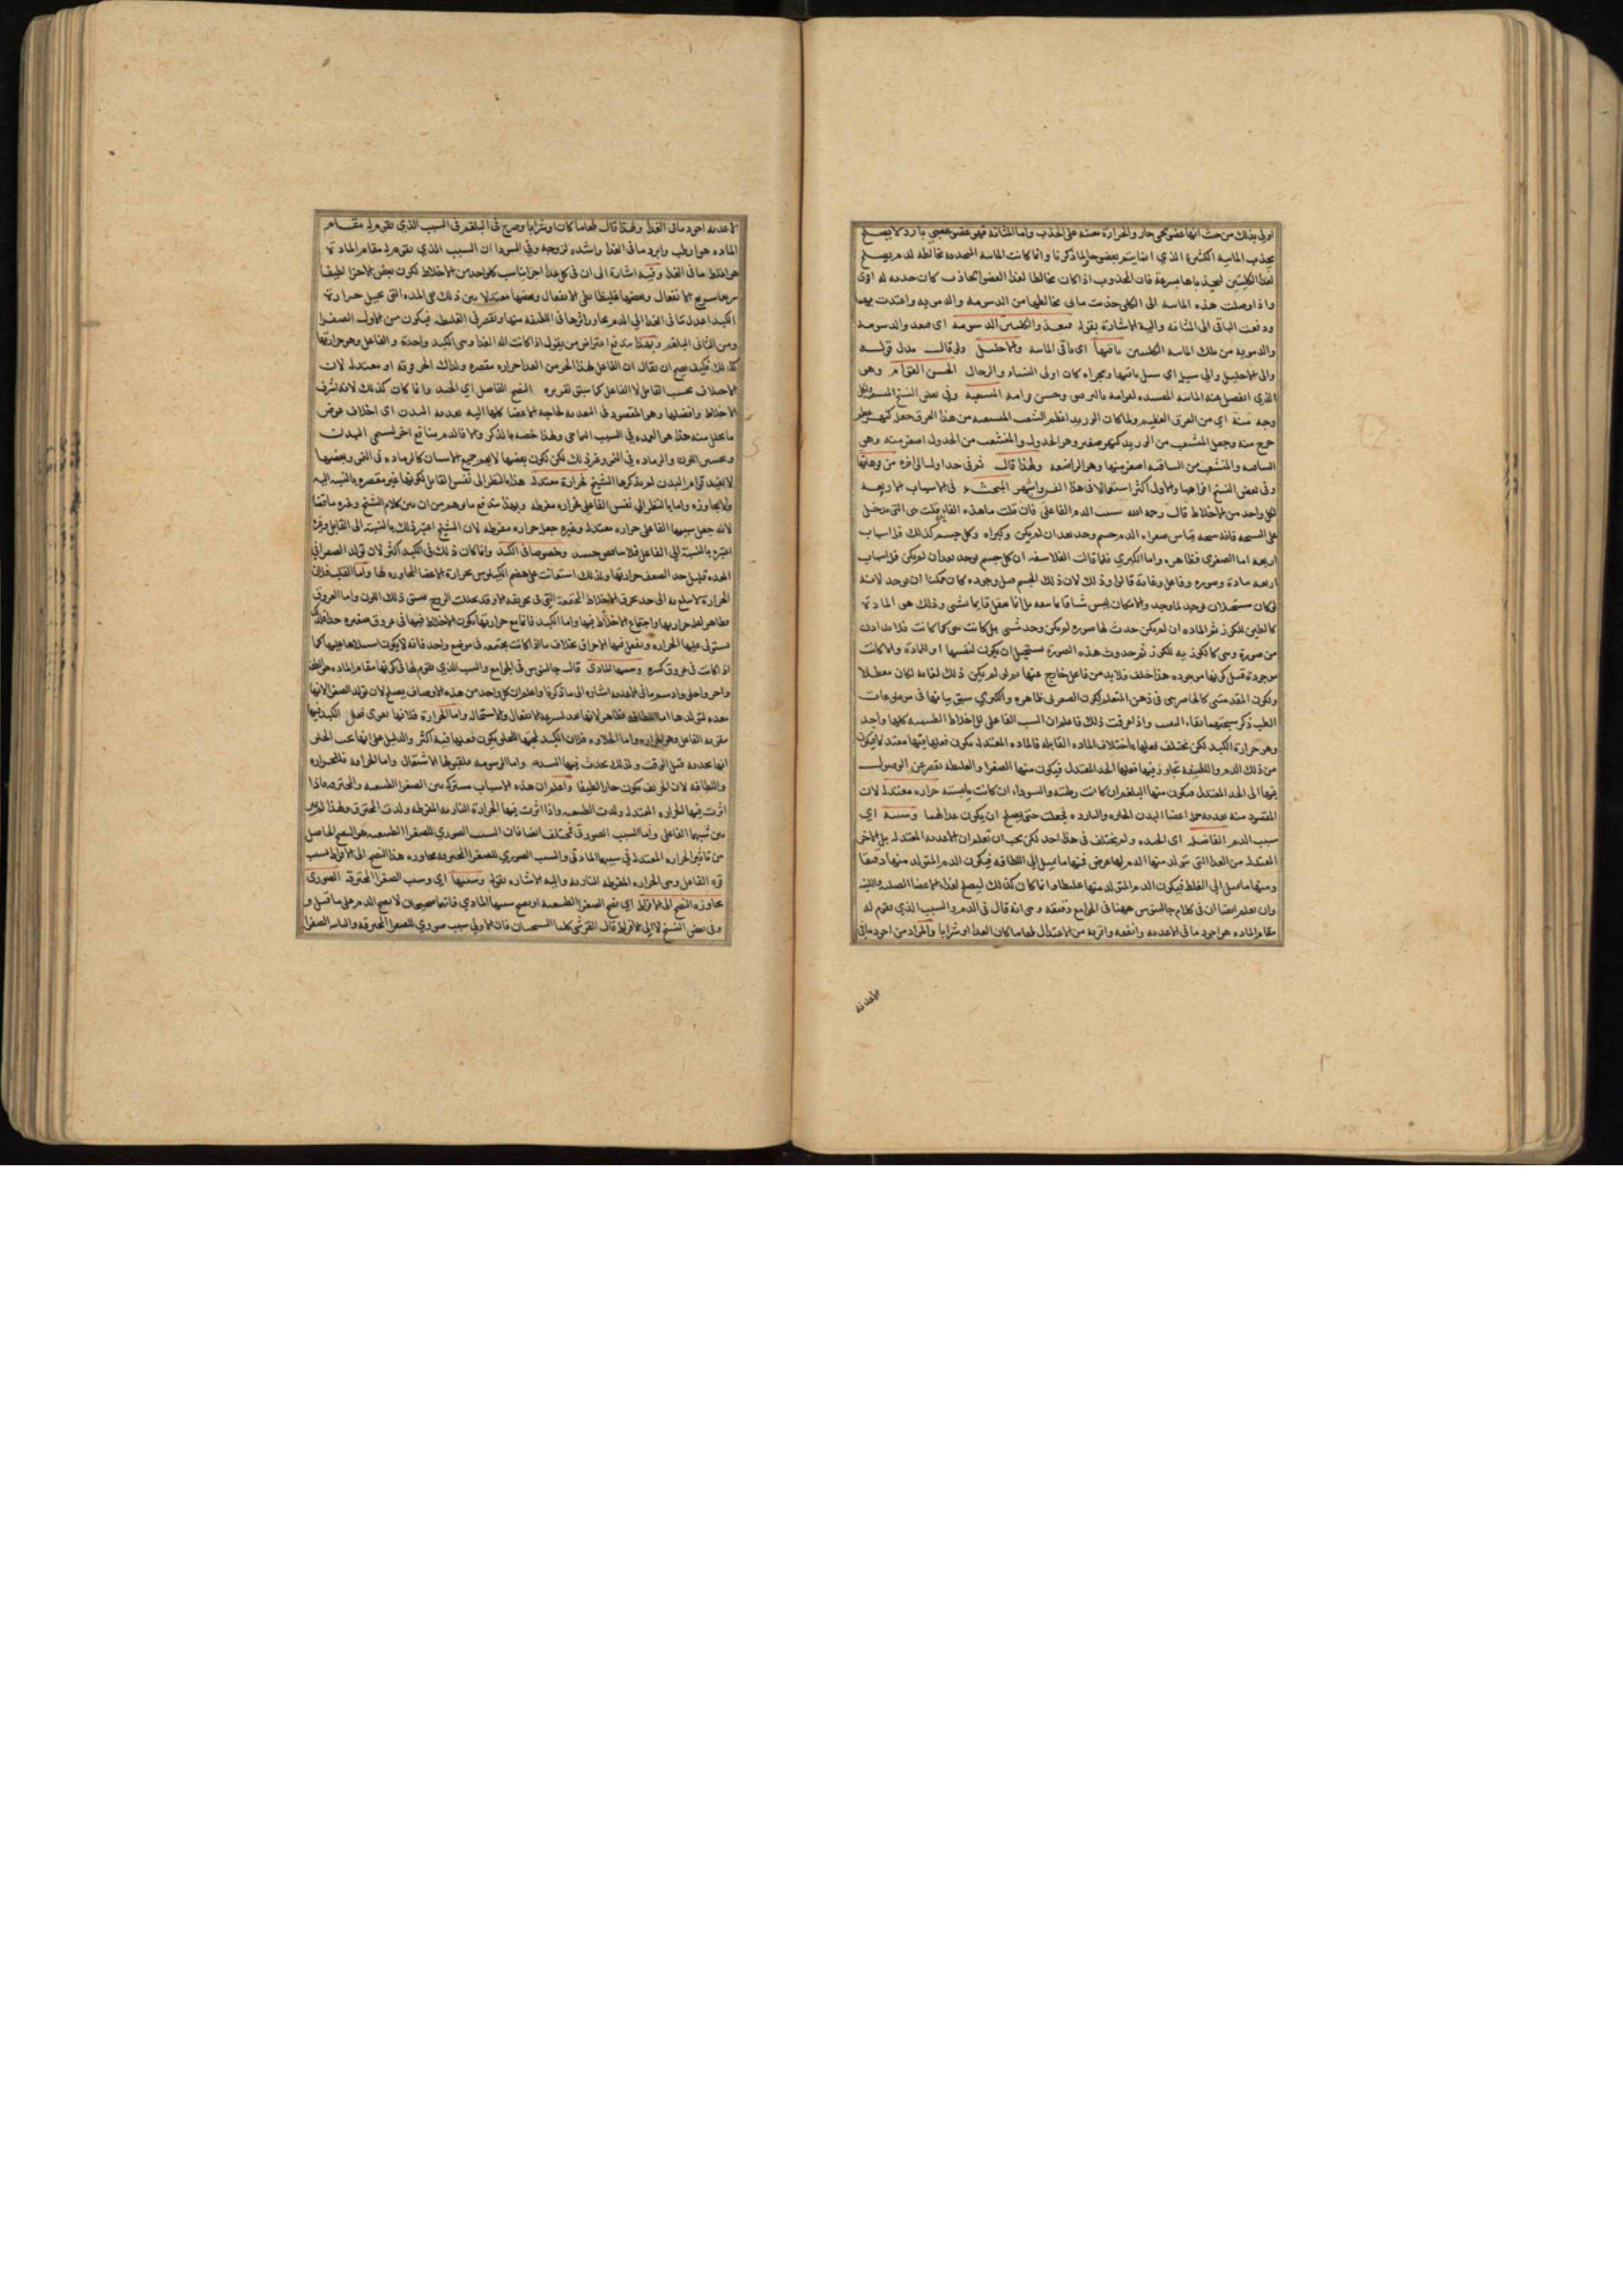 اولى بذلك من حيث انها عضو لحمى حار والحرارة معينة على الجذب واما المثانة فهى عضو عصبي بارد لا يصلح
لجذب المائية الكثيرة الذي انما يتم بعضو حار لما ذكرنا وانما كانت المائية المنحدره مخالطة لدم يصلح
لغذا الكليتين لتجذباها بسرعة فان المجذوب اذا كان مخالطا لغذا العضو الجاذب كان جذبه له اقوى
واذا وصلت هذه المائية الى الكلى جذبت ما فى مخالطها من الدسومة والدموية واغتذت بهما
ودفعت الباقى الى المثانة واليه الاشارة بقوله فيغذو الكليتين الدسومة اى فتغذو الدسومة
والدموية من تلك المائية الكليتين باقيها اى باقى المائية والاحليل ولو قال بدل قوله
والى الاحليل والى سبيل اى سبيل باقيها ومجراه كان اولى النساء والرجال الحسن القوام وهى
الذي انفصل عنه المائية
وجه منه اي من العرق العظيم ولما كان الوريد اعظم الشعب المتشعبة من هذا العرق جعل كنهر عظيم
خرج منه وجعل المتشعب من الوريد كنهر صغير وهو الجدول والمتشعب من الجدول اصغر منه وهى
الساقية والمتشعب من الساقية اصغر منها وهو الراضعة ولهذا قال ثم فى جداول الى اخره من فوهاتها
وفى بعض النسخ افواهها والاول اكثر استعمالا فى هذا الفن واشهر المبحث فى الاسباب الاربعة
لكل واحد من الاخلاط قال رحمه الله سبب الدم الفاعلى فان قلت ما هذه الفا قلت هى التى تدخل
على النتيجة فانه نتيجة قياس صغراه الدم جسم وجد بعد ان لم يكن وكبراه وكل جسم كذلك فله اسباب
اربعه اما الصغرى فظاهره واما الكبرى فلما قالت الفلاسفه ان كل جسم يوجد بعد ان لم يكن فله اسباب
اربعه مادة وصوره وفاعل وغاية قالوا وذلك لان ذلك الجسم قبل وجوده كان ممكنا ان يوجد لانه
لو كان مستحيلا لن يوجد لما وجد والامكان ليس شيئا قايما بنفسه بل انما يعقل قايما بشى وذلك هو المادة
كالطين للكوز ثم المادة ان لم يكن حدث لها صوره لم يكن وجد شى بل كانت هى كما كانت فلا بد اذن
من صورة وهى كالكوزيه للكوز ثم حدوث هذه الصورة مستحيل ان يكون لنفسها او للمادة والا كانت
موجودة قبل كونها موجوده هذا خلف فلابد من فاعل خارج عنها ثم لو لم يكن ذلك لغاية لكان معطلا
الطب ذكر واذا عرفت ذلك فاعلم ان السبب الفاعلى لكل الاخلاط الطبيعيه كلها واحد
وهو حرارة الكبد لكن تختلف فعلها باختلاف المادة القابلة فالمادة المعتدلة يكون فعلها فيها معتدلا فيكون
من ذلك الدم واللطيفة تجاوز فيها فعلها الحد المعتدل فيكون منها الصفرا والغليظة تقصر عن الوصول
فيها الى الحد المعتدل فيكون منها البلغم ان كانت رطبة والسوداء ان كانت يابسة حراره معتدلة لان
المقصود منه تغذية اعضا البدن الحارة والباردة فجعلت حتى يصلح ان يكون غذا لهما وسببه اي
سبب الدم الفاضل اى الجيد ولم يختلف فى هذا احد لكن يجب ان تعلم ان الاغذية المعتدلة بل الاجزا
المعتدلة من الغذا التى يتولد منها الدم لها عرض فمنها ما يميل الى اللطافة فيكون الدم المتولد منها رقيقا
ومنها ما يميل الى الغلظ فيكون الدم المتولد منها غليظا وانما كان كذلك ليصلح لغذا الاعضا الصلبة واللينة
وان تعلم ايضا ان فى كلام جالينوس ههنا فى الجوامع دقيقة وهى انه قال فى الدم والسبب الذي يقوم له
مقام المادة هو اجود ما فى الاغذية وانفعه واقربه من الاعتدال طعاما كان الغذا او شرابا والمراد من اجود ما فى
الاغذية
الاغذية اجود ما فى الغذا ولهذا قال طعاما كان او شرابا وصرح فى البلغم فى السبب الذي يقوم له مقام
المادة هو ارطب وابرد ما فى الغذا واشده لزوجة وفى السودا ان السبب الذي يقوم له مقام المادة
هو اغلظ ما فى الغذا وفيه اشارة الى ان فى كل غذا اجزا يناسب كل واحد من الاخلاط لكون بعض الاجزا لطيفا
سريع الانفعال وبعضها غليظا بطى الانفعال وبعضها معتدلا بين ذلك هى المادة التى تحيل حرارة
الكبد اعدل ما فى الغذا الى الدم يجاوز اثرها فى اللطيفة منها ويقصر فى الغليظة فيكون من الاول الصفرا
ومن الثانى البلغم وبهذا يندفع اعتراض من يقول اذا كانت آلة الغذا وهى الكبد واحدة والفاعل وهو حرارتها
كذلك فكيف يصح ان يقال ان الفاعل لهذا الجزء من الغذا حراره مقصره ولذاك المحرقة او معتدلة لان
الاختلاف بحسب القابل لا الفاعل كما سبق تقريره النضج الفاضل اي الجيد وانما كان كذلك لانه اشرف
الاخلاط وافضلها وهو المقصود فى التغذية لحاجة الاعضا كلها اليه تغذية البدن اى اخلاف عوض
ما تحلل منه هذا هو العمدة فى السبب التمامى ولهذا خصه بالذكر والا فالدم منافع اخر
وتحسين اللون والزيادة فى النمو وغير ذلك لكن تكون بعضها لا يعم جميع الاسنان كالزيادة فى النمو وبعضها
لا يفيد قوام البدن لم يذكرها الشيخ لحرارة معتدلة هذا بالنظر الى نفس القابل لكونها غير مقصره بالنسبة اليه
ولا مجاوزه واما بالنظر الى نفس الفاعل فحراره مفرطه وبهذا يندفع ما توهم من ان بين كلام الشيخ وغيره تناقضا
لانه جعل سببها الفاعلى حراره معتدلة وغيره جعل حراره مفرطه لان الشيخ اعتبر ذلك بالنسبة الى القابل وغيره
اعتبره بالنسبة الى الفاعل فلا تناقض حينئذ وخصوصا فى الكبد وانما كان ذلك فى الكبد اكثر لان تولد الصفرا فى
المعدة قليل جدا لضعف حرارتها ولذلك استعانت على هضم الكيلوس بحرارة الاعضا المجاوره لها واما القلب فلان
الحرارة لا تبلغ به الى حد يحرق الاخلاط المجتمعة التى فى تجويفه الا وقد تحللت الروح فبقى ذلك اللون واما العروق
فظاهر لقلة حرارتها واجتماع الاخلاط فيها واما الكبد فانها مع حرارتها تكون الاخلاط فيها فى عروق صغيره جدا فلذلك
تستولى عليها الحرارة وتفعل فيها الاحراق بخلاف ما اذا كانت مجتمعة فى موضع واحد فانه لا يكون استيلاها عليها كما
اذا كانت فى عروق كثيرة وسببها المادى قال جالينوس فى الجوامع والسبب الذي يقوم لها فى كونها مقام المادة هو الطف
واحر واحلى وادسم ما فى الاغذية اشاره الى ما ذكرنا واعلم ان كل واحد من هذه الاوصاف يصلح لان تولد الصفرا لانها
معدة لتولدها اما اللطافة فظاهر لانها تعد لسرعة الانفعال والاستحالة واما الحرارة فلانها تقوى فعل الكبد فيها
بتقوية الفاعل وهو الحرارة واما الحلاوه فلان الكبد لمحبتها للحلى يكون فعلها فيه اكثر والدليل على انها تحب الحلى
انها تجذبه قبل الوقت ولذلك يحدث فيها السدد واما الدسومة فلقبولها الاشتعال واما الحرافة فللحراره
واللطافة لان الحريف يكون حارا لطيفا واعلم ان هذه الاسباب مشتركة بين الصفرا الطبيعية والمحترقة فاذا
اثرت فيها الحرارة المعتدلة ولدت الطبيعية واذا اثرت فيها الحرارة النارية المفرطة ولدت المحترقة ولهذا
بين سببهما الفاعلى واما السبب الصورى فمختلف ايضا فان السبب الصوري للصفرا الطبيعية هو النضج الحاصل
من تاثير الحرارة المعتدلة فى سببها المادى والسبب الصوري للصفرا المحترقة مجاوزه هذا النضج الى الافراط بسبب
قوة الفاعل وهى الحرارة المفرطة النارية واليه الاشارة بقوله وسببها اي وسبب الصفرا المحترقة الصورى
مجاوزه النضج الى الافراط اي نضج الصفرا الطبيعية او نضج سببها المادي فانهما صحيحان لا نضج الدم على ما قيل و
وفى بعض النسخ لا الى الافراط قال القرشى كلتا النسختان فان الاولى سبب صوري للصفرا المحترقة والثانية للصفرا